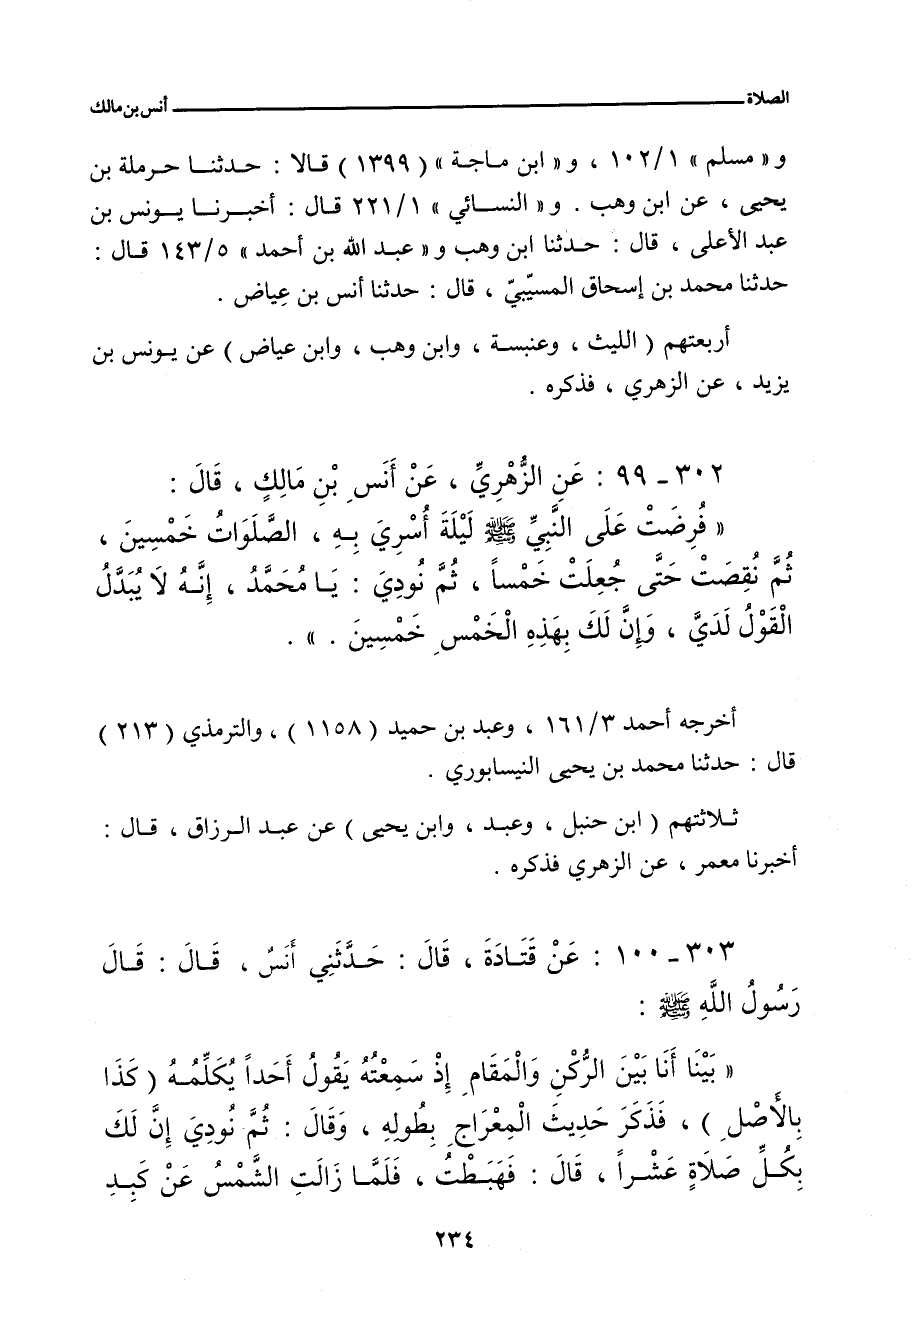 الصلاة ـــــــــــــــــ أنس بن مالك
و « مسلم » ١٠٢/١ ، و « ابن ماجة » ( ١٣٩٩ ) قالا : حدثنا حرملة بن
يحيى ، عن ابن وهب . و « النسائي » ٢٢١/١ قال : أخبرنا يونس بن
عبد الأعلى ، قال : حدثنا ابن وهب و « عبد الله بن أحمد » ١٤٣/٥ قال :
حدثنا محمد بن إسحاق المسيّبيّ ، قال : حدثنا أنس بن عِياض .
أربعتهم ( الليث ، وعنبسة ، وابن وهب ، وابن عياض ) عن يونس بن
يزيد ، عن الزهري ، فذكره .
٣٠٢ ـ ٩٩ : عَنِ الزُّهْرِيِّ ، عَنْ أَنَسِ بْنِ مَالِكٍ ، قَالَ :
« فُرِضَتْ عَلَى النَّبِيِّ ﷺ لَيْلَةَ أُسْرِيَ بِهِ ، الصَّلَوَاتُ خَمْسِينَ ،
ثُمَّ نُقِصَتْ حَتَّى جُعِلَتْ خَمْساً ، ثُمَّ نُودِيَ : يَا مُحَمَّدُ ، إِنَّهُ لَا يُبَدَّلُ
الْقَوْلُ لَدَيَّ ، وَإِنَّ لَكَ بِهَذِهِ الْخَمْسِ خَمْسِينَ . » .
أخرجه أحمد ١٦١/٣ ، وعبد بن حميد ( ١١٥٨ ) ، والترمذي ( ٢١٣ )
قال : حدثنا محمد بن يحيى النيسابوري .
ثلاثتهم ( ابن حنبل ، وعبد ، وابن يحيى ) عن عبد الرزاق ، قال :
أخبرنا معمر ، عن الزهري فذكره .
٣٠٣ ـ ١٠٠ : عَنْ قَتَادَةَ ، قَالَ : حَدَّثَنِي أَنَسٌ ، قَالَ : قَالَ
رَسُولُ اللَّهِ ﷺ :
« بَيْنَا أَنَا بَيْنَ الرُّكْنِ وَالْمَقَامِ إِذْ سَمِعْتُهُ يَقُولُ أَحَداً يُكَلِّمُهُ ( كَذَا
بِالْأَصْلِ ) ، فَذَكَرَ حَدِيثَ الْمِعْرَاجِ بِطُولِهِ ، وَقَالَ : ثُمَّ نُودِيَ إِنَّ لَكَ
بِكُلِّ صَلَاةٍ عَشْراً ، قَالَ : فَهَبَطْتُ ، فَلَمَّا زَالَتِ الشَّمْسُ عَنْ كَبِدِ
٢٣٤